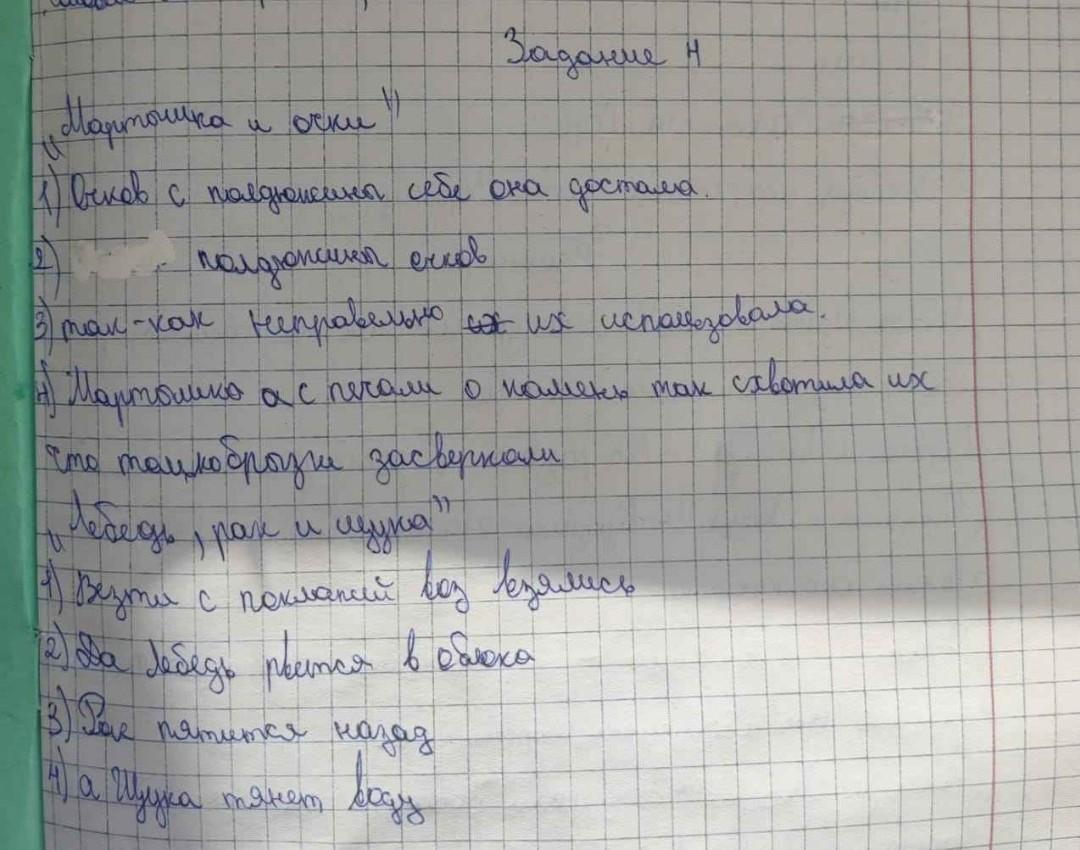 Задание 4
„Мартошка и очки"
1) Очков с полдюжины себе она достала.
2) полдюжины очков
3) так-как неправельно их использовала.
4) Мартошка а с печали о камень так схватила их
что толькобрызги засверкали
„Лебедь, рак и щука"
1) Везти с поклажий воз взялись
2) Да Лебедь рвется в облока
3) Рак пятится назад
4) а Щука тянет воду